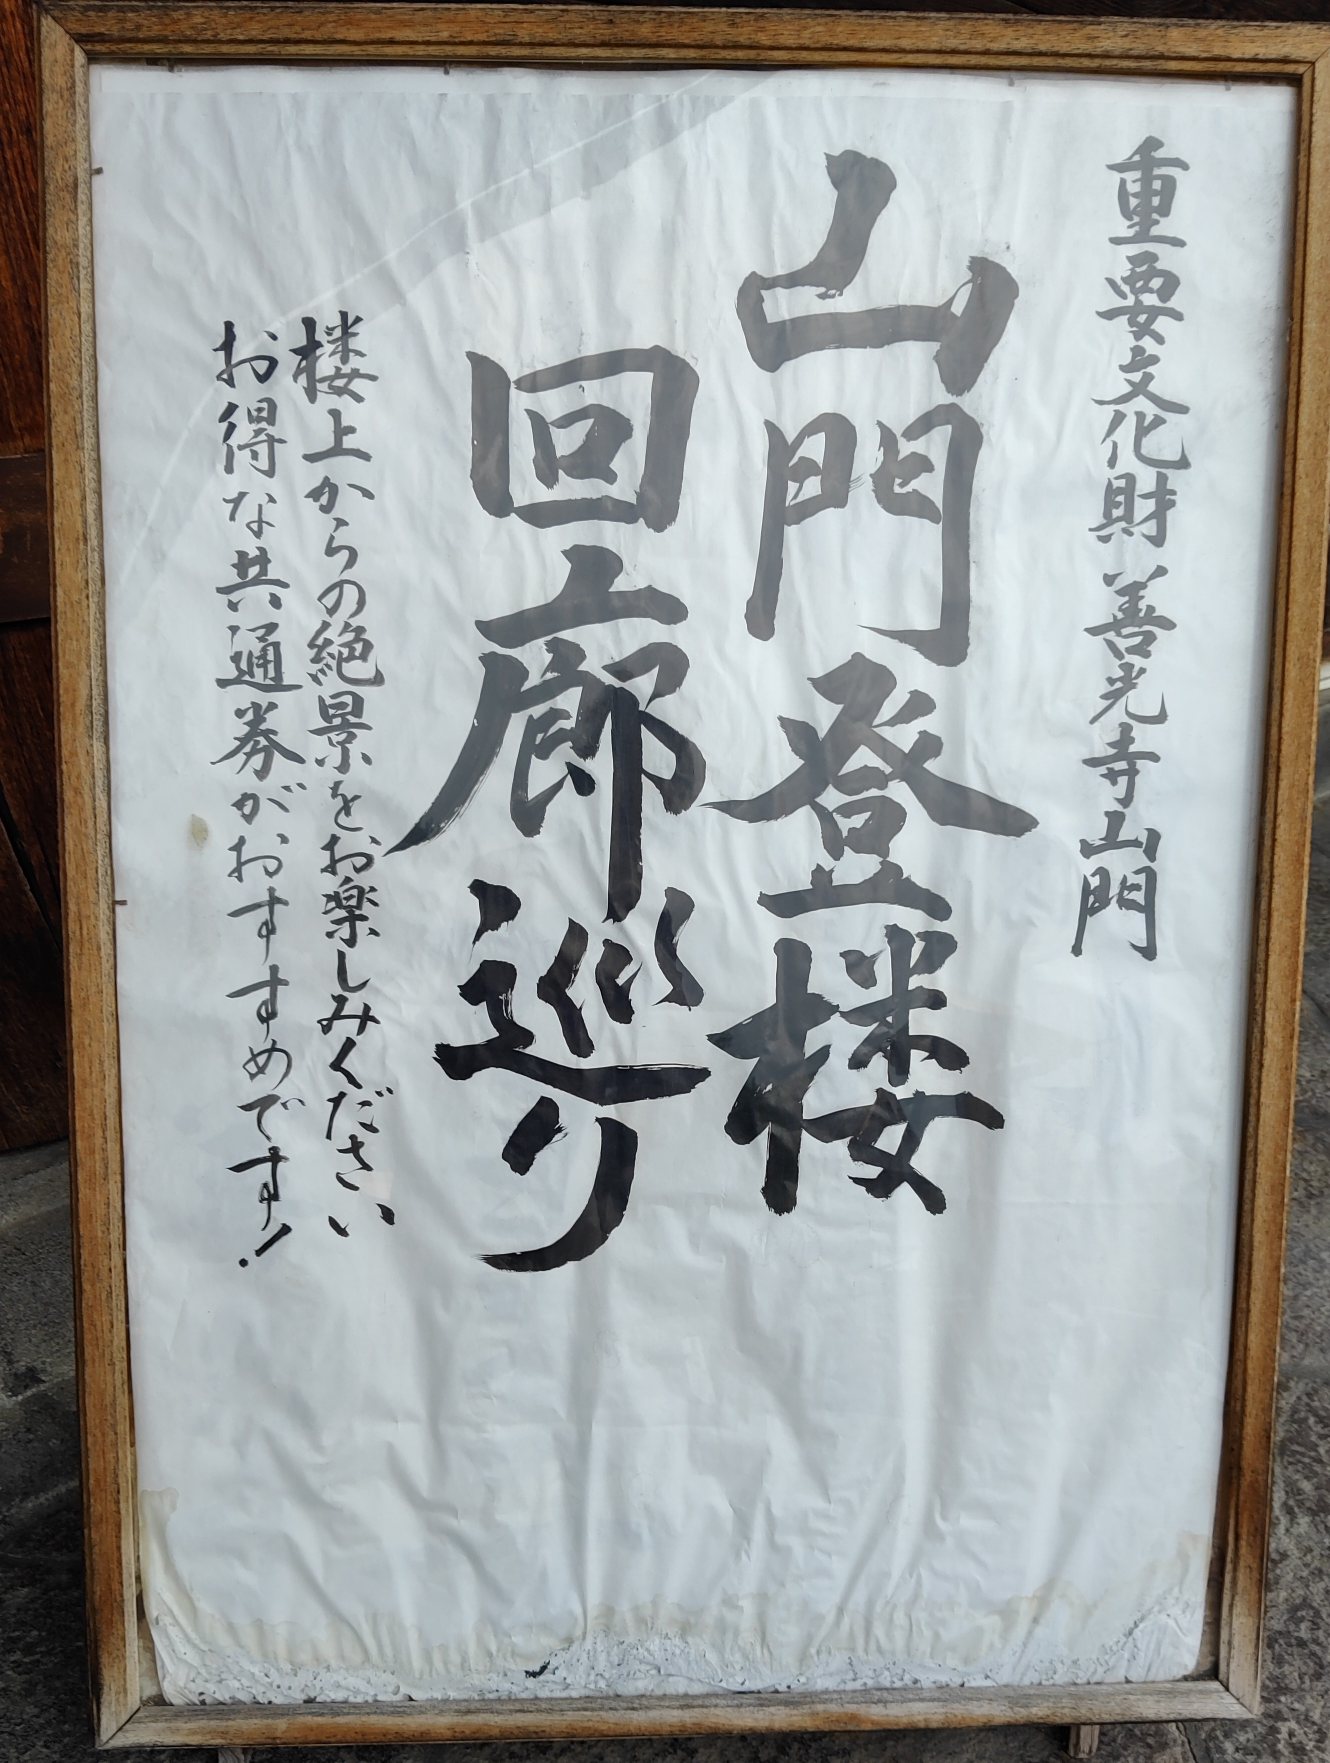 重要文化財 善光寺山門
山門登楼
回廊巡り
楼上からの絶景をお楽しみください
お得な共通券がおすすめです!